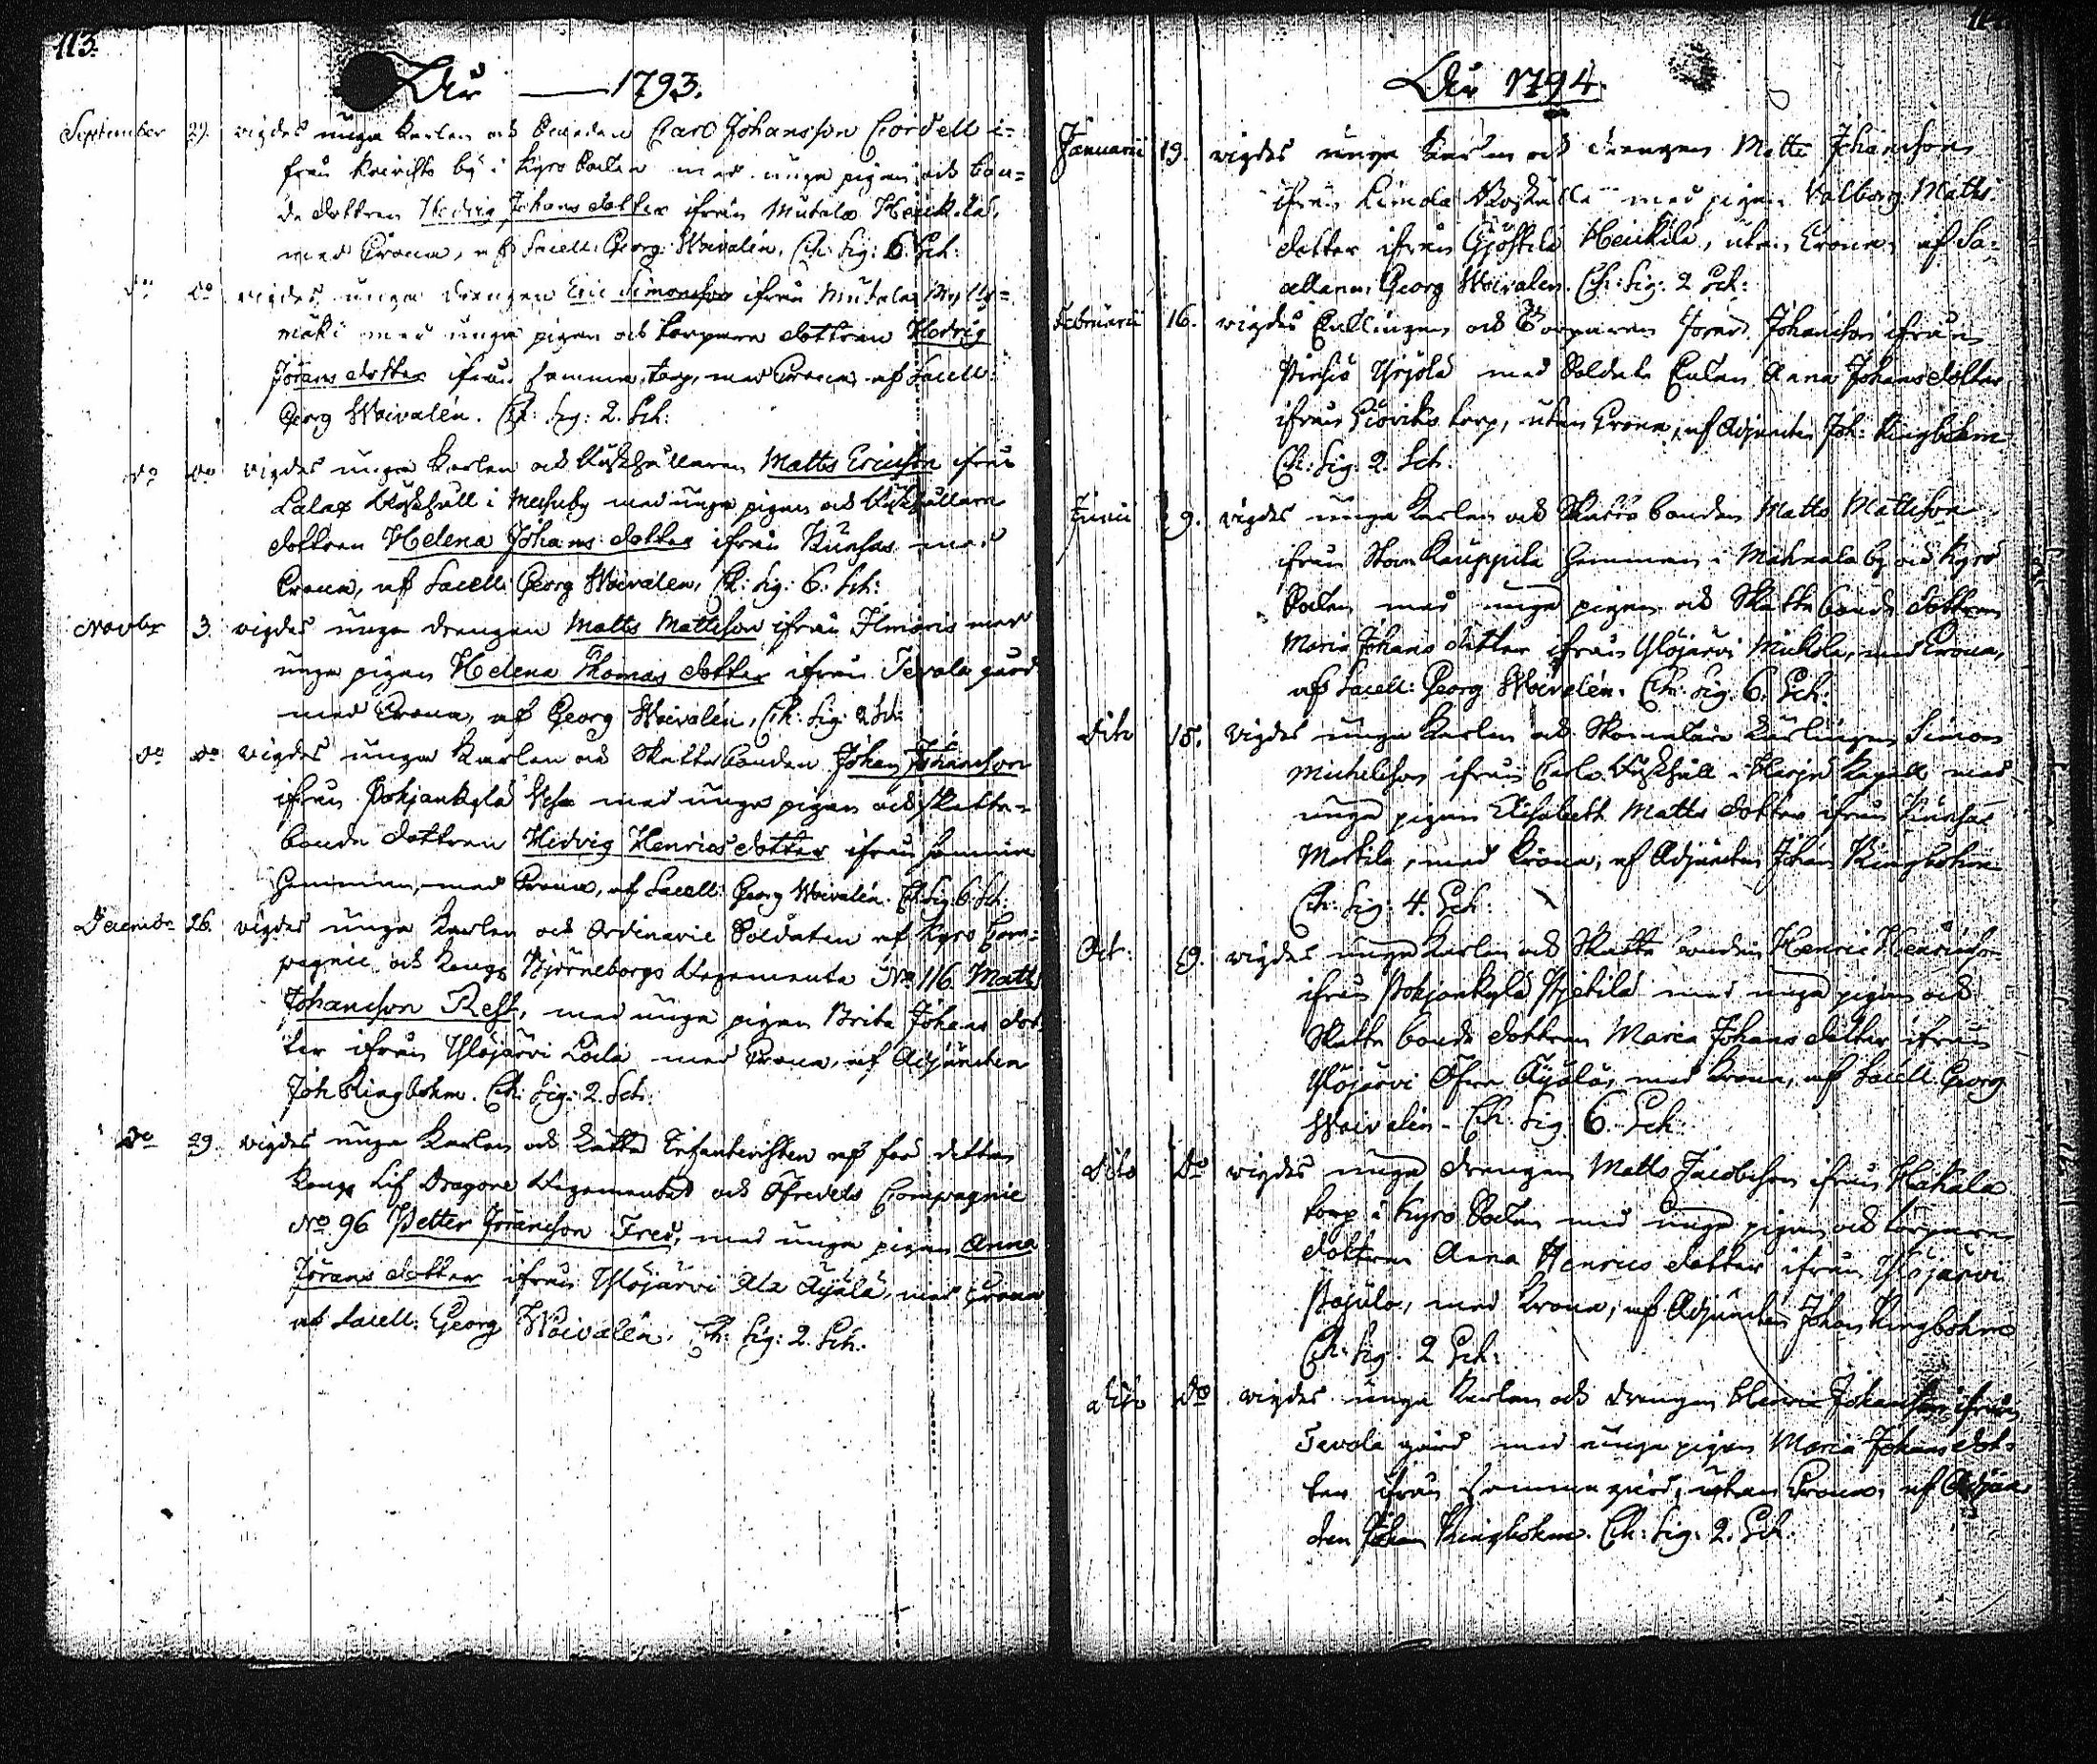 113.
År 1793.
September 29. vigdes unga karlen och Smeden Carl Johansson Cordell i=
från by i Kyro Socken med unga pigan och bon=
de dottren Hedvig Johans dotter ifrån Mutala Heickilä,
med Crona, af Sacell: Georg Woivalén, Ch: Sig: 6. Sch:
do do vigdes unga drengen Eric Simonsson ifrån Mutala
mäki med unga pigan och torpare dottren Hedvig
Jörans dotter ifrån samma torp, med Crona af Sacell:
Georg Woivalén. Ch: Sig: 2. Sch:
do do vigdes unga karlen och Rusthållaren Matts Ericsson ifrån
Lalax Rusthåll i Messuby med unga pigan och Rusthållare
dottren Helena Johans dotter ifrån Runsas med
Crona, af Sacell: Georg Woivalén, Ch: Sig: 6. Sch:
Novbr 3. vigdes unga drengen Matts Mattsson ifrån Ilmaris med
unga pigan Helena Thomas dotter ifrån Tevala gård
med Crona, af Georg Woivalén, Ch: Sig: 2 Sch:
do do vigdes unga karlen och Skattebonden Johan Johansson
ifrån Pohjankylä med unga pigan och skatte=
bonde dottren Hedvig Henrics dotter ifrån samma
hemman, med Crona, af Sacell: Georg Woivalén. Ch: Sig: 6. Sch:
Decembr 26. vigdes unga karlen och Ordinarie Soldaten af Kyro Com=
pagnie och Kongl Björneborgs Regemente No 116. Matts
Johansson Rest, med unga pigan Brita Johans dot
ter ifrån Ylöjärvi med Crona, af Adjuncten
Joh Ringbohm. Ch: Sig: 2. Sch:
do 29. vigdes unga karlen och lätta Infanteristen af förr detta
Kongl Lif Dragone Regementet och Öfverstens Compagnie
No 96 Petter Jöransson Fred, med unga pigan Anna
Jörans dotter ifrån Ylöjärvi Ala Äijälä, med Crona
af Sacell: Georg Woivalén. Ch: Sig: 2. Sch:
År 1794.
Januarii 19. vigdes unga karlen och drengen Matts Johansson
ifrån med pigan Valborg Matts
dotter ifrån Heickilä, utan Crona, af Sa=
cellanen Georg Woivalén. Ch: Sig: 2 Sch:
Februarii 16. vigdes Enklingen och Torparen Jöran Johansson ifrån
Yrjölä med Soldate Enkan Anna Johans dotter
ifrån torp, utan Crona, af Adjuncten Joh: Ringbohm
Ch: Sig: 2. Sch:
Junii 9. vigdes unga karlen och Skatte bonden Matts Mattsson
ifrån Kauppila hemman i Mahnala by och Kyro
Socken med unga pigan och Skatte bonde dottren
Maria Johans dotter ifrån Ylöjärvi Mickola, med Crona,
af Sacell: Georg Woivalén. Ch: Sig: 6. Sch:
dito 15. vigdes unga karlen och Skomakare Lärlingen Simon
Michelsson ifrån Rusthåll i Harju Kapell med
unga pigan Elisabeth Matts dotter ifrån Runsas
Markila, med Krona, af Adjuncten Johan Ringbohm
Ch: Sig: 4. Sch:
Oct: 19. vigdes unga karlen och Skatte bonden Henric Henricsson
ifrån Pohjankylä Pjetilä med unga pigan och
Skatte bonde dottren Maria Johans dotter ifrån
Ylöjärvi Öfre Äijälä, med Krona, af Sacell: Georg
Woivalén. Ch: Sig: 6. Sch:
dito do vigdes unga drengen Matts Jacobsson ifrån Hakala
torp i Kyro Socken med unga pigan och torpare
dottren Anna Henrics dotter ifrån Ylöjärvi
Pajula, med Krona, af Adjuncten Johan Ringbohm
Ch: Sig: 2 Sch:
dito do vigdes unga karlen och drengen Henric Johansson ifrån
Tevala gård med unga pigan Maria Johans dot=
ter ifrån samma gård, utan Crona, af Adjunc
ten Johan Ringbohm. Ch: Sig: 2. Sch: